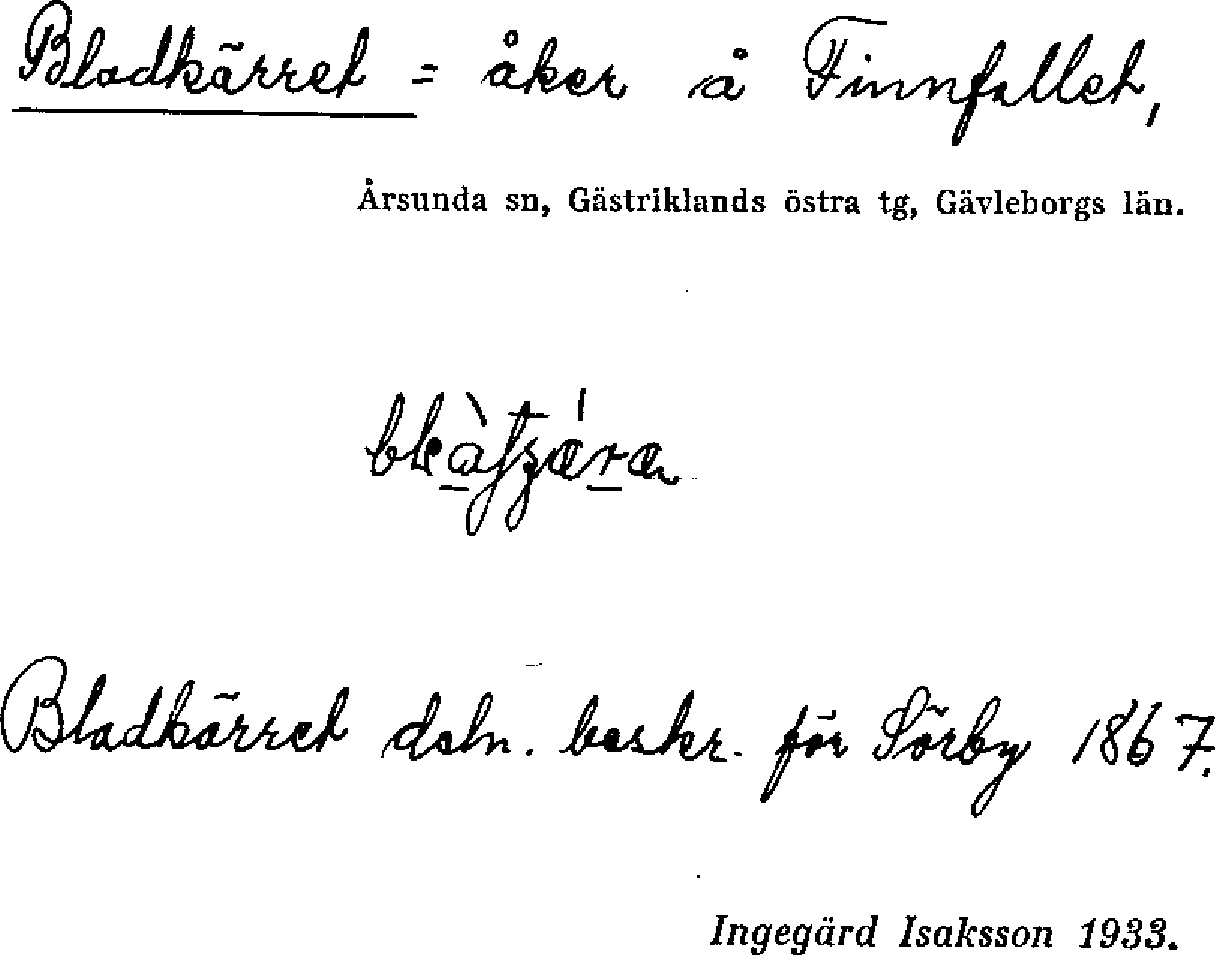 Bladkärret = åker å Finnfallet,
Årsunda sn, Gästriklands östra tg, Gävleborgs län.
Bladkärret deln. beskr. för Sörby 1867.
Ingegärd Isaksson 1933.